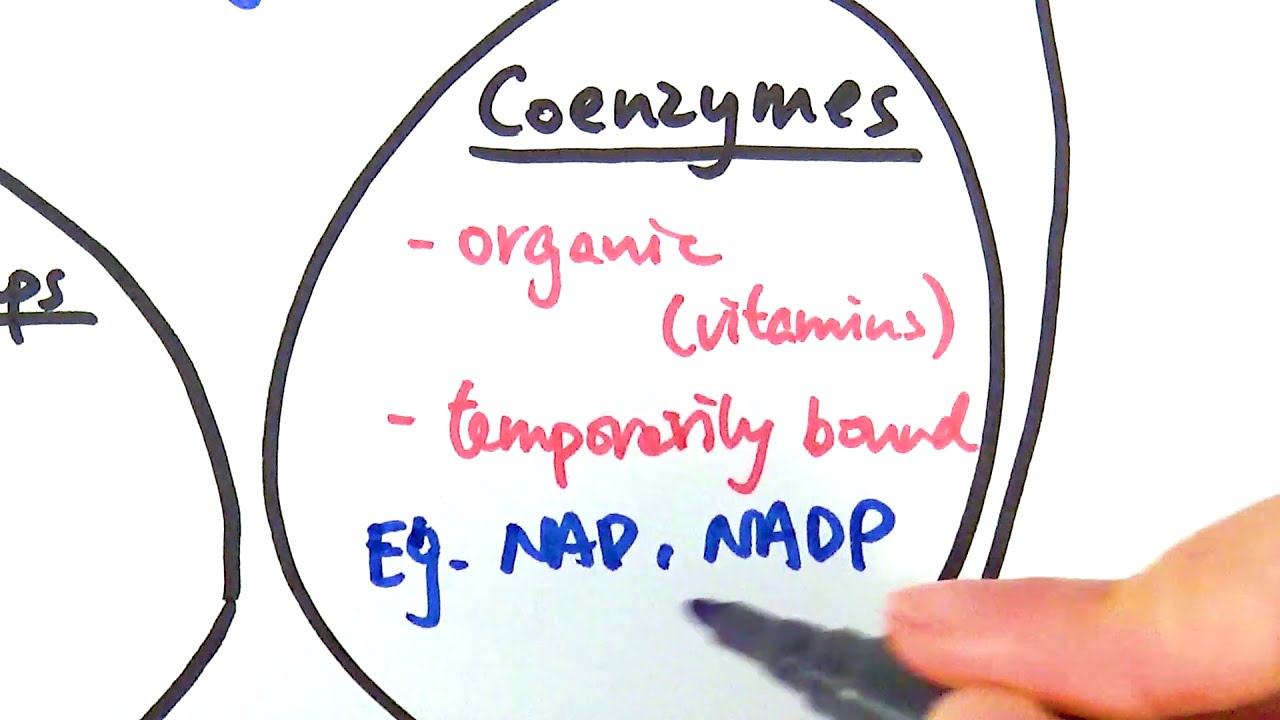 Coenzymes
- organic
(vitamins)
ps
- temporarily bound
Eg. NAD, NADP